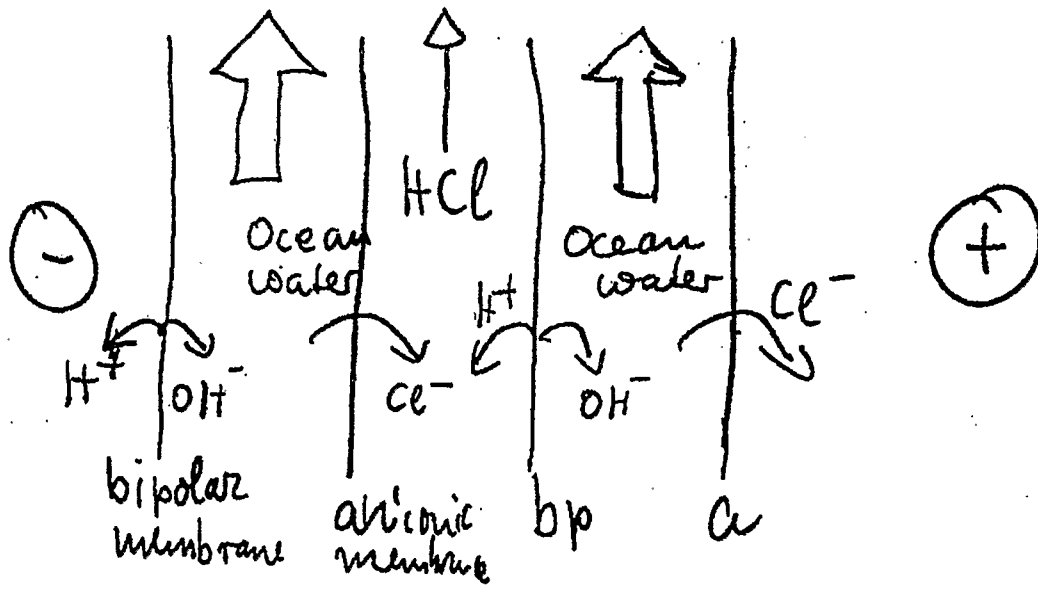 HCl
Ocean
water
Ocean
water
-
+
H⁺
OH⁻
Cl⁻
H⁺
OH⁻
Cl⁻
bipolar
membrane
anionic
membrane
bp
a